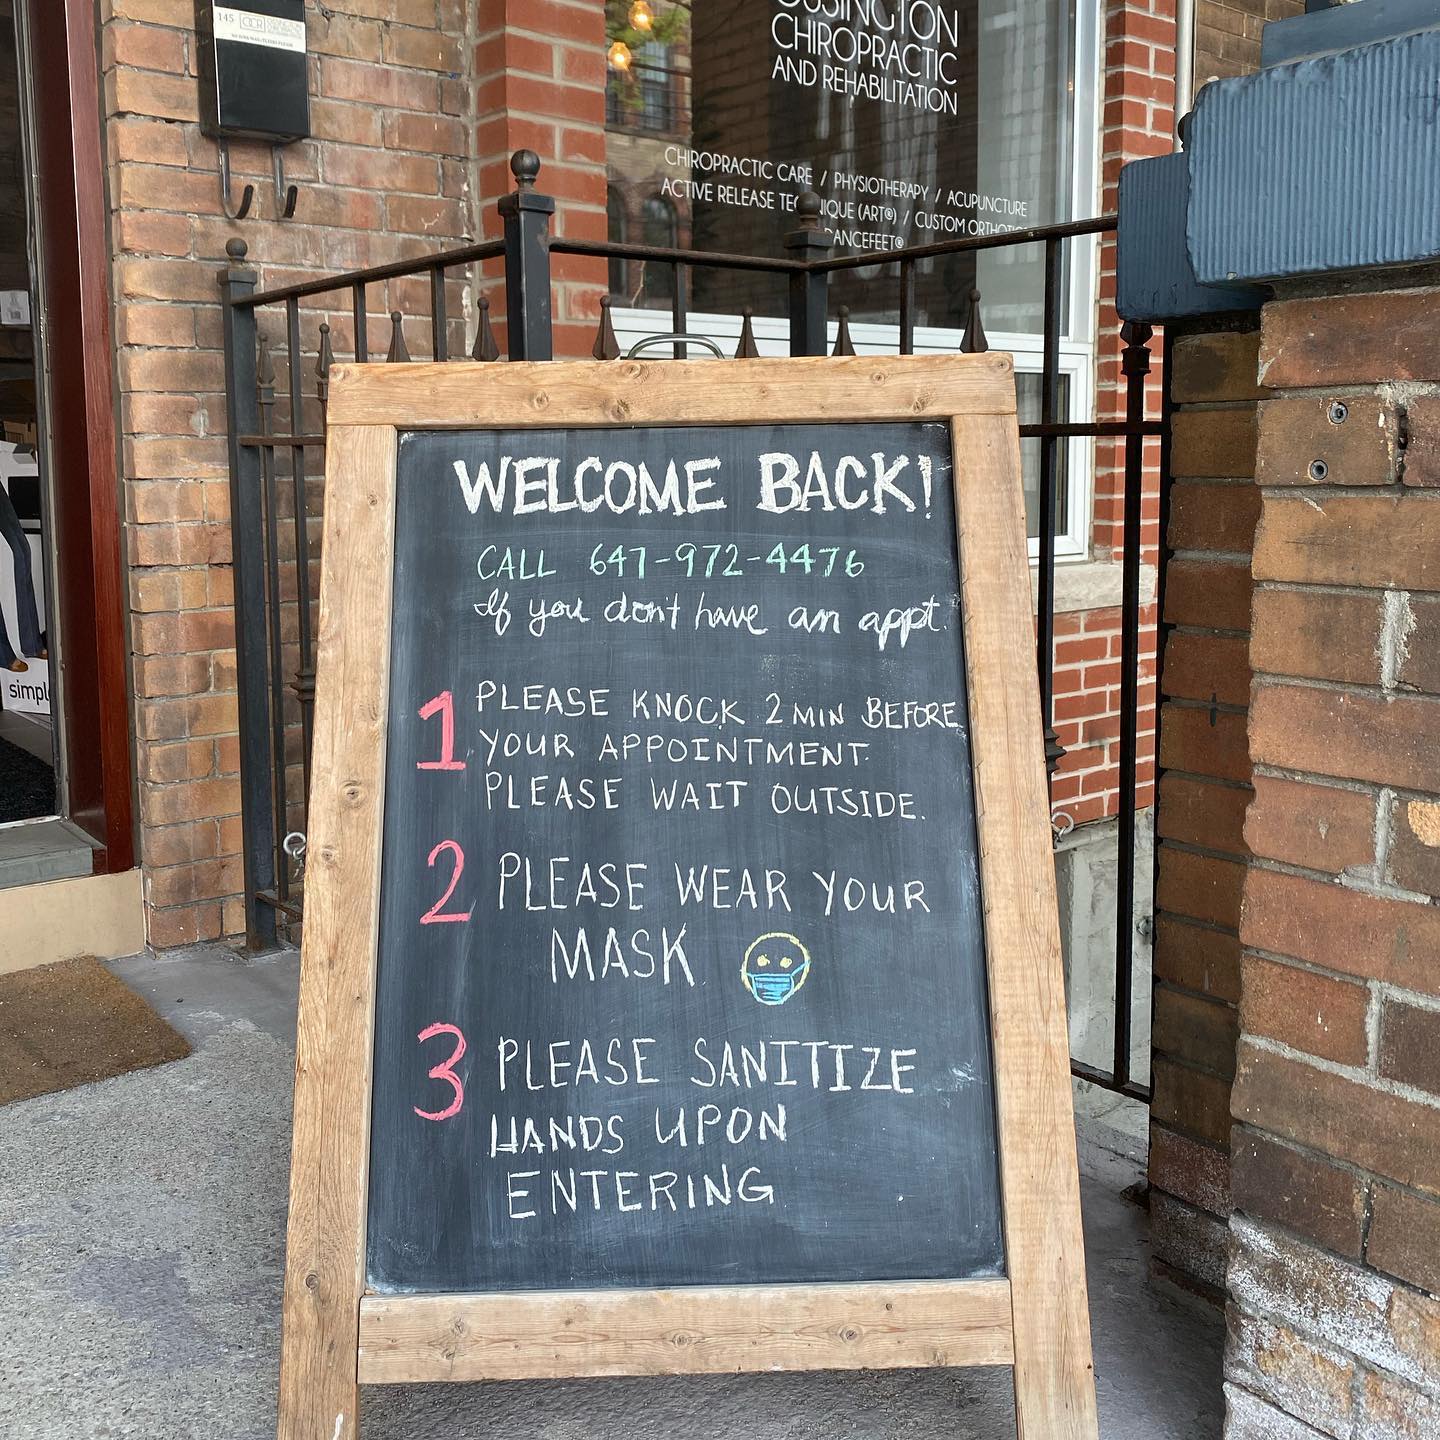 145 OCR
OSSINGTON
CHIROPRACTIC
AND REHABILITATION
CHIROPRACTIC CARE / PHYSIOTHERAPY / ACUPUNCTURE
ACTIVE RELEASE (ART®) / CUSTOM
WELCOME BACK!
CALL 647-972-4476
If you don't have an appt.
1 PLEASE KNOCK 2 MIN BEFORE
YOUR APPOINTMENT.
PLEASE WAIT OUTSIDE.
2 PLEASE WEAR YOUR
MASK.
3 PLEASE SANITIZE
HANDS UPON
ENTERING
simpl